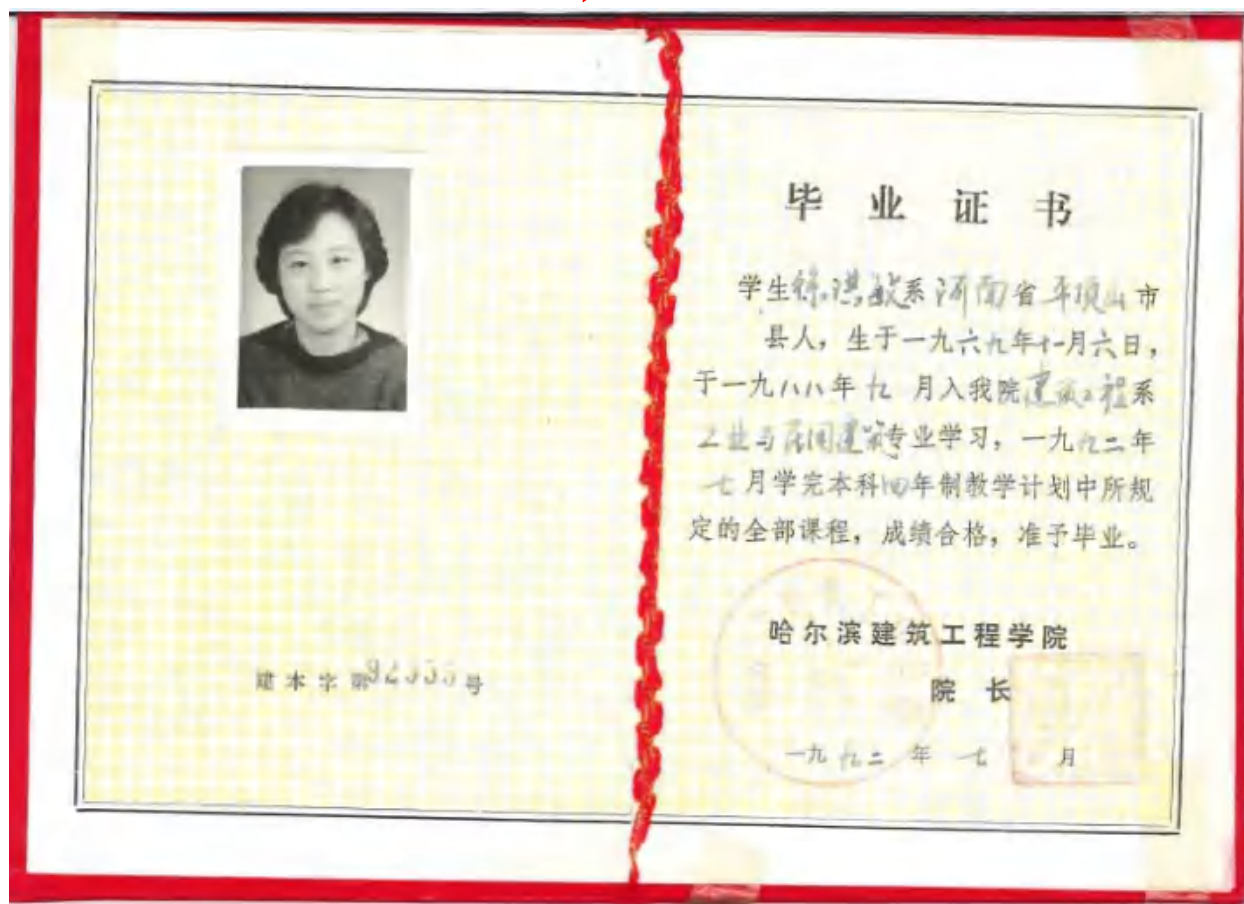 毕业证书
学生徐洪敏系河南省平顶山市
县人，生于一九六九年十一月六日，
于一九八八年九月入我院建筑工程系
工业与民用建筑专业学习，一九九二年
七月学完本科四年制教学计划中所规
定的全部课程，成绩合格，准予毕业。
哈尔滨建筑工程学院
院长
一九九二年七月
建本字第号